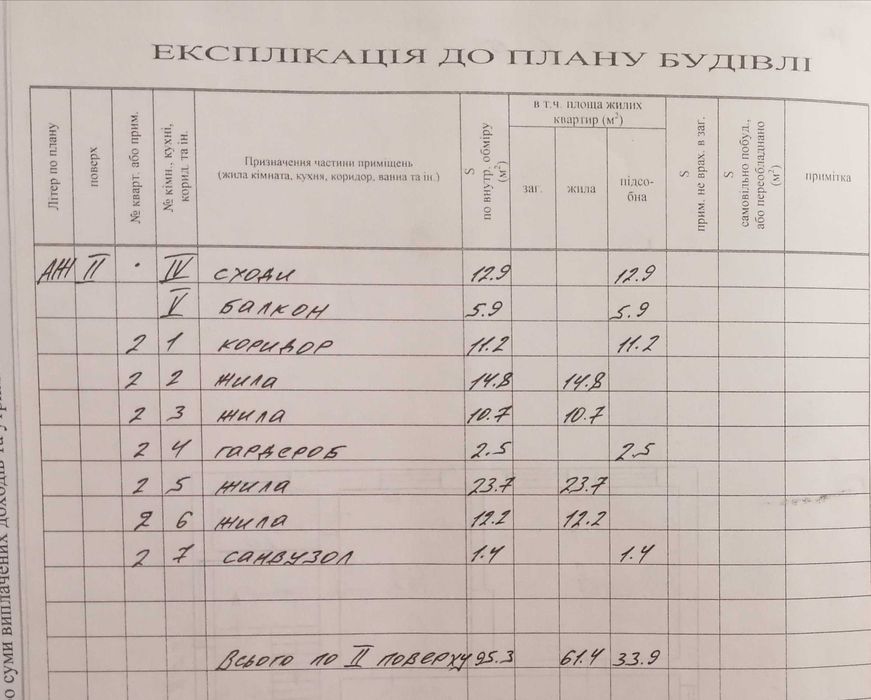 ЕКСПЛІКАЦІЯ ДО ПЛАНУ БУДІВЛІ
Літер по плану
поверх
№ кварт. або прим.
№ кімн., кухні, корид. та ін.
Призначення частини приміщень
(жила кімната, кухня, коридор, ванна та ін.)
S по внутр. обміру (м²)
в т.ч. площа жилих
квартир (м²)
заг.
жила
підсо-
бна
S прим. не врах. в заг.
S самовільно побуд., або переобладнано (м²)
примітка
АЖ II IV сходи 12.9 12.9
V балкон 5.9 5.9
2 1 коридор 11.2 11.2
2 2 жила 14.8 14.8
2 3 жила 10.7 10.7
2 4 гардероб 2.5 2.5
2 5 жила 23.7 23.7
2 6 жила 12.2 12.2
2 7 санвузол 1.4 1.4
Всього по II поверху 95.3 61.4 33.9
о суми виплачених доходів та утрим